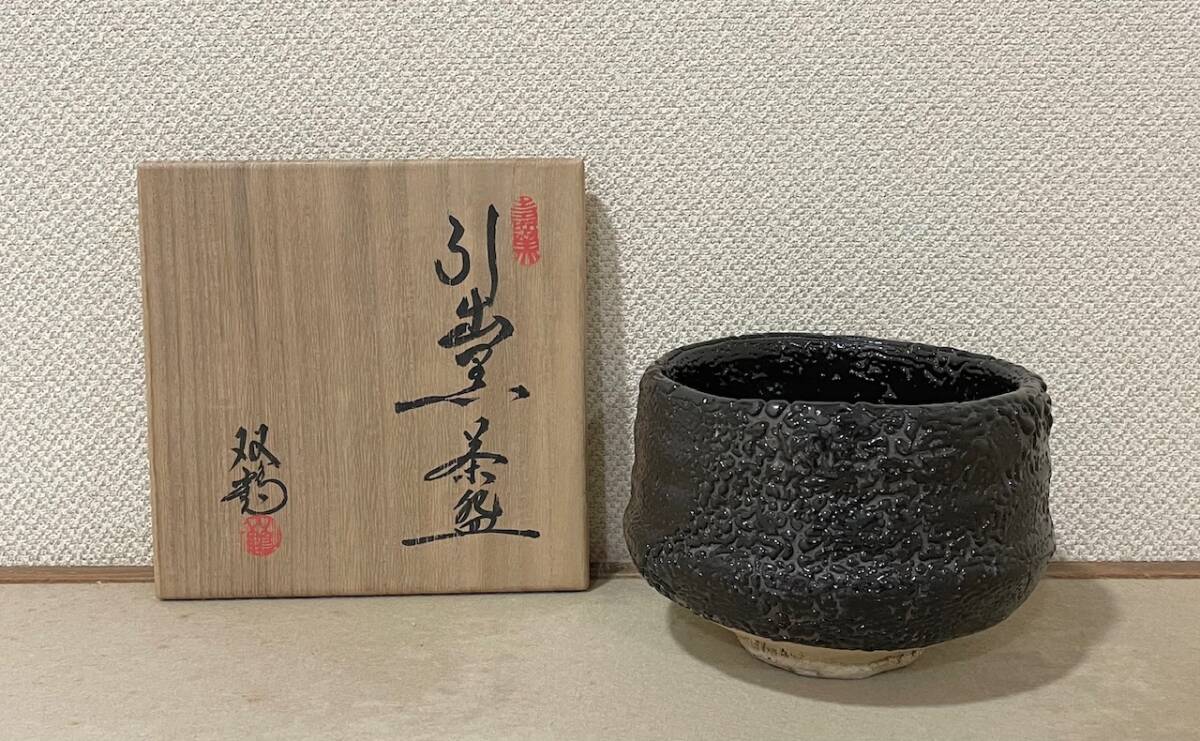 引出黒茶盌
双鶴